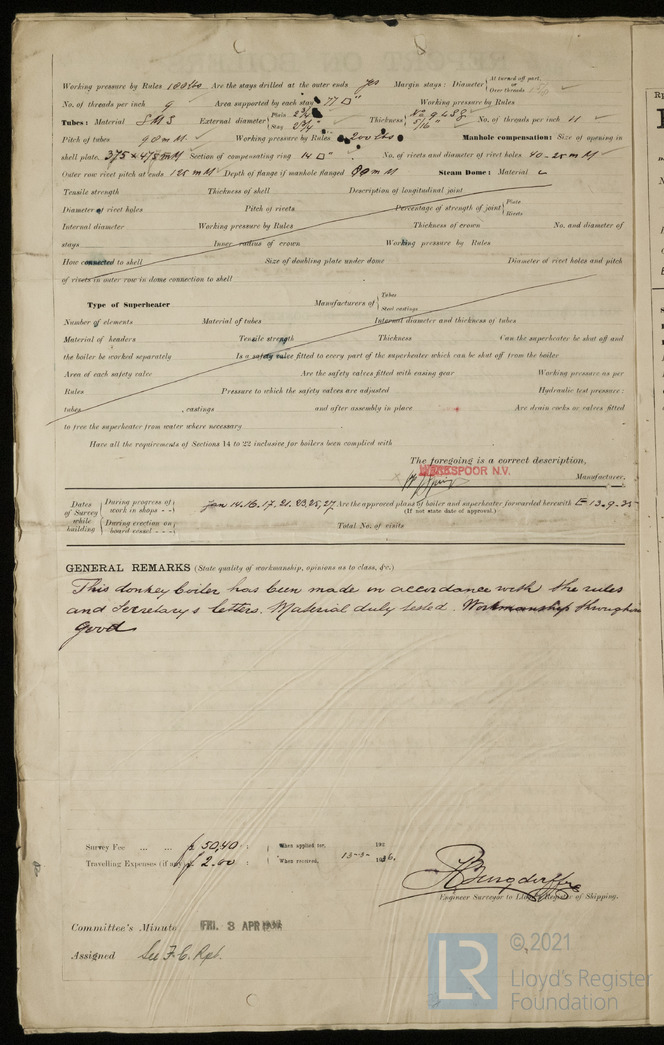 Working pressure by Rules 100 lbs Are the stays drilled at the outer ends yes Margin stays: Diameter { At turned off part, or Over threads
No. of threads per inch 9 Area supported by each stay 77 □" Working pressure by Rules
Tubes: Material S.M.S External diameter { Plain 2 3/4" Stay 2 3/4" Thickness { No 9 LSG 5/16" No. of threads per inch 11
Pitch of tubes 90 m M Working pressure by Rules 200 lbs Manhole compensation: Size of opening in
shell plate 375 x 475 m M Section of compensating ring 14 □" No. of rivets and diameter of rivet holes 40 - 25 m M
Outer row rivet pitch at ends 125 m M Depth of flange if manhole flanged 80 m M Steam Dome: Material
Tensile strength Thickness of shell Description of longitudinal joint
Diameter of rivet holes Pitch of rivets Percentage of strength of joint { Plate Rivets
Internal diameter Working pressure by Rules Thickness of crown No. and diameter of
stays Inner radius of crown Working pressure by Rules
How connected to shell Size of doubling plate under dome Diameter of rivet holes and pitch
of rivets in outer row in dome connection to shell
Type of Superheater Manufacturers of { Tubes Steel castings
Number of elements Material of tubes Internal diameter and thickness of tubes
Material of headers Tensile strength Thickness Can the superheater be shut off and
the boiler be worked separately Is a safety valve fitted to every part of the superheater which can be shut off from the boiler
Area of each safety valve Are the safety valves fitted with easing gear Working pressure as per
Rules Pressure to which the safety valves are adjusted Hydraulic test pressure:
tubes , castings and after assembly in place Are drain cocks or valves fitted
to free the superheater from water where necessary
Have all the requirements of Sections 14 to 22 inclusive for boilers been complied with
The foregoing is a correct description,
WERKSPOOR N.V.
Manufacturer.
Dates of Survey while building { During progress of work in shops - - } Jan 14. 16. 17. 21. 23. 25. 27. Are the approved plans of boiler and superheater forwarded herewith E 13-9-35
(If not state date of approval.)
{ During erection on board vessel - - - } Total No. of visits
GENERAL REMARKS (State quality of workmanship, opinions as to class, &c.)
This donkey boiler has been made in accordance with the rules
and Secretary's letters. Material duly tested. Workmanship throughout
good
Survey Fee ... ... f 50,40 : When applied for, 193
Travelling Expenses (if any) f 2.00 : When received, 13-3- 1936.
Engineer Surveyor to Lloyd's Register of Shipping.
Committee's Minute FRI. 3 APR 1936
Assigned See F.E. Rpt.
LR ©2021
Lloyd's Register
Foundation